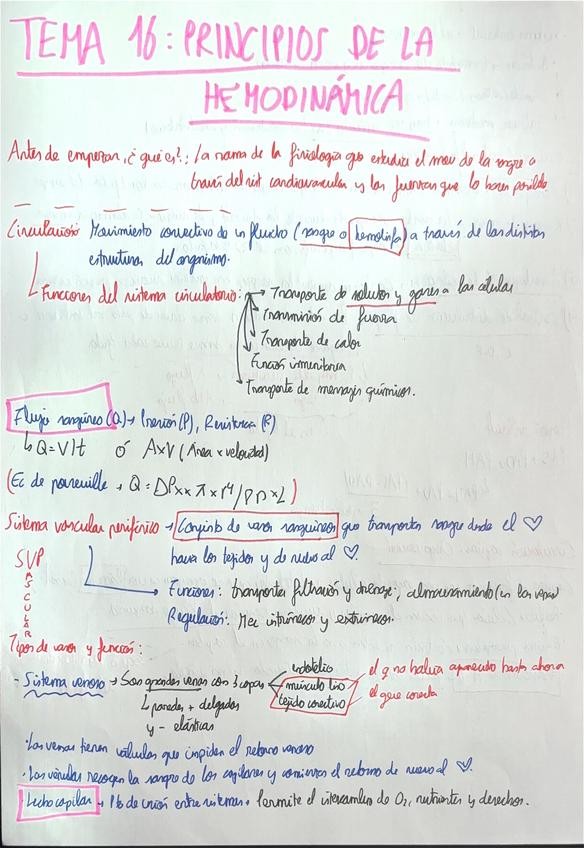 TEMA 16: PRINCIPIOS DE LA
HEMODINÁMICA
Antes de empezar, ¿qué es?: la rama de la fisiología que estudia el mov de la sangre a
través del sist cardiovascular y las fuerzas que lo hacen posible.
Circulación Movimiento convectivo de un fluido (sangre o hemolinfa) a través de las distintas
estructuras del organismo.
Funciones del sistema circulatorio: → Transporte de solutos y gases a las células
Transmisión de fuerza
Transporte de calor
Función inmunitaria
Transporte de mensajes químicos.
Flujo sanguíneo (Q) → Presión (P), Resistencia (R)
↳ Q = V/t ó A x V (Área x velocidad)
(Ec de poiseuille → Q =
Sistema vascular periférico → Conjunto de vasos sanguíneos que transportan sangre desde el ♡
hacia los tejidos y de nuevo al ♡.
SVP
ASCULAR
Funciones: transporta filtración y drenaje, almacenamiento (en las venas)
Regulación: Mec intrínsecos y extrínsecos.
Tipos de vasos y función:
- Sistema venoso → Son grandes venas con 3 capas
endotelio
músculo liso
tejido conectivo
el q no había aparecido hasta ahora
el que conecta
↳ paredes + delgadas
y - elásticas
· Las venas tienen válvulas que impiden el retorno venoso
· Las vénulas recogen la sangre de los capilares y comienzan el retorno de nuevo al ♡.
Lecho capilar → Pto de unión entre sistemas → Permite el intercambio de O₂, nutrientes y desechos.